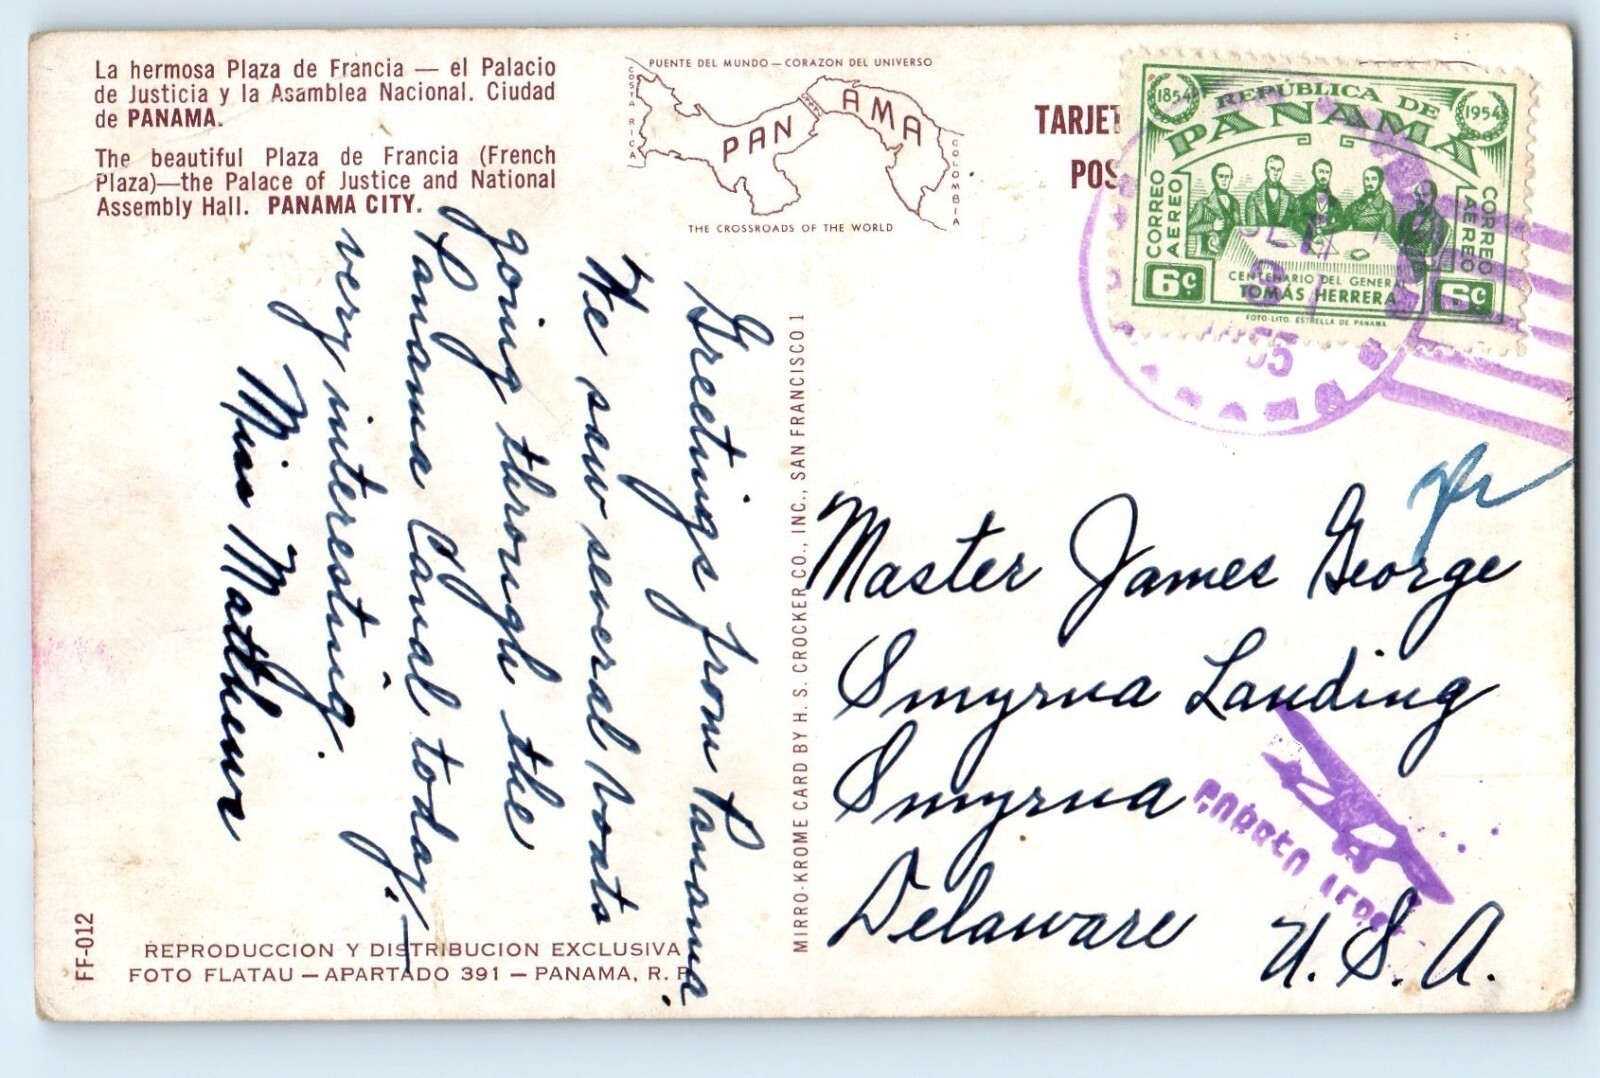 La hermosa Plaza de Francia — el Palacio
de Justicia y la Asamblea Nacional. Ciudad
de PANAMA.
The beautiful Plaza de Francia (French
Plaza)—the Palace of Justice and National
Assembly Hall. PANAMA CITY.
PUENTE DEL MUNDO — CORAZON DEL UNIVERSO
COSTA RICA
PANAMA
COLOMBIA
THE CROSSROADS OF THE WORLD
TARJET
POS
1854
REPÚBLICA DE
1954
PANAMA
CORREO
AEREO
CORREO
AEREO
6¢
CENTENARIO DEL GENERAL
TOMÁS HERRERA
6¢
FOTO-LITO. ESTRELLA DE PANAMA
55
Greetings from Panama.
We saw several boats
going through the
Panama Canal today. —
very interesting.
Miss Matthews
MIRRO-KROME CARD BY H. S. CROCKER CO., INC., SAN FRANCISCO 1
Master James George
Smyrna Landing
Smyrna
Delaware U. S. A.
AEREO
FF-012
REPRODUCCION Y DISTRIBUCION EXCLUSIVA
FOTO FLATAU — APARTADO 391 — PANAMA, R. P.